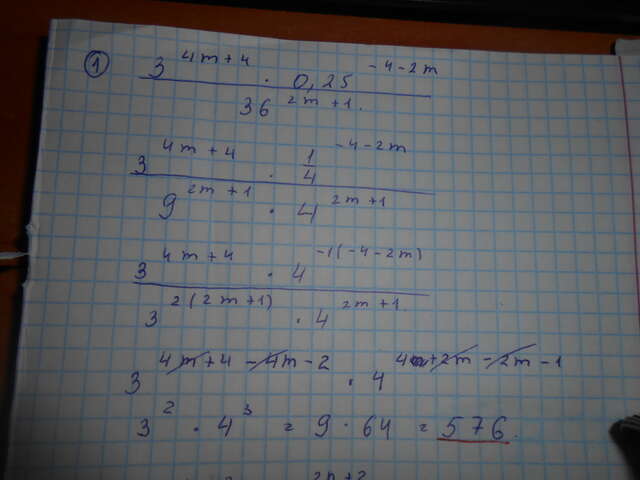 ① 3^(4m+4) · 0,25^(-4-2m)
36^(2m+1).
3^(4m+4) · 1/4^(-4-2m)
9^(2m+1) · 4^(2m+1)
3^(4m+4) · 4^(-1(-4-2m))
3^(2(2m+1)) · 4^(2m+1).
3^(4m+4-4m-2) · 4^(4+2m-2m-1)
3² · 4³ = 9 · 64 = 576.
2m+2